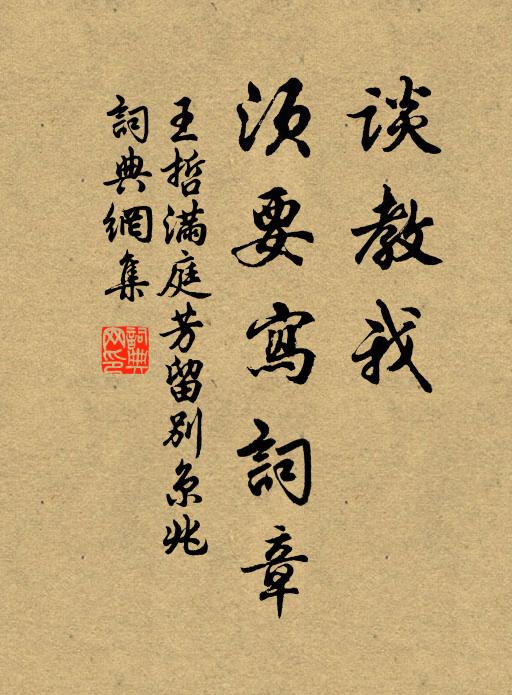 谈教我
须要寫詞章
王哲满庭芳留别京兆
詞典網集
詞典网印